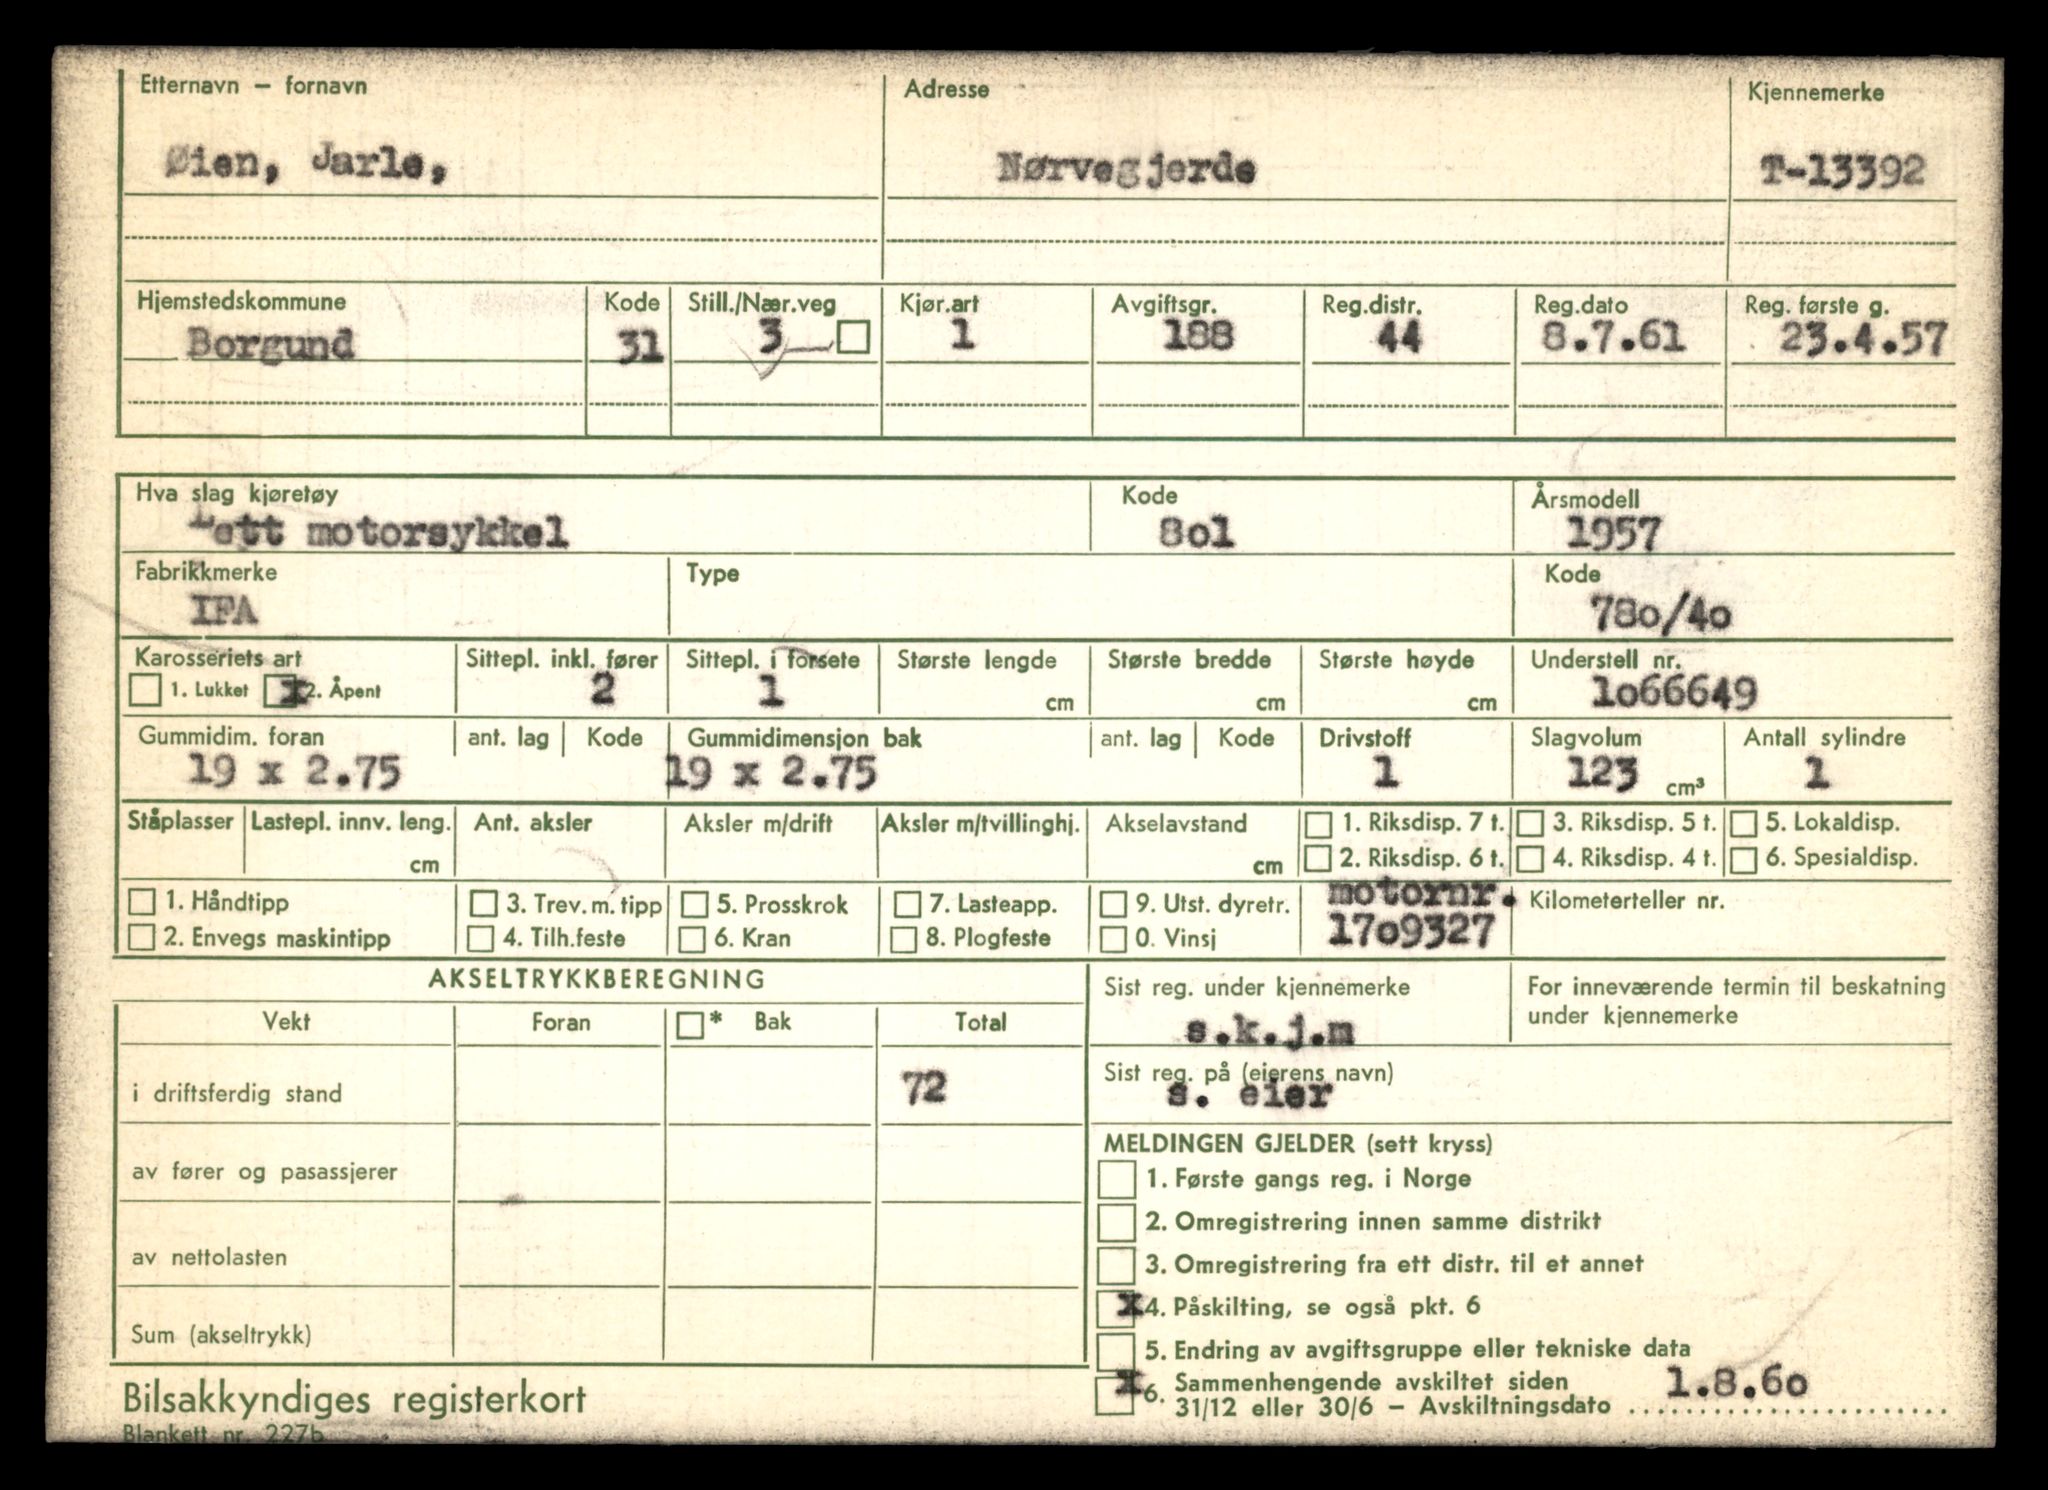 Etternavn – fornavn
Adresse
Kjennemerke
Øien, Jarle,
Nørvegjerde
T-13392
Hjemstedskommune
Kode
Still./Nær.veg
Kjør.art
Avgiftsgr.
Reg.distr.
Reg.dato
Reg. første g.
Borgund
31
3
1
188
44
8.7.61
23.4.57
Hva slag kjøretøy
Kode
Årsmodell
Lett motorsykkel
8o1
1957
Fabrikkmerke
Type
Kode
IFA
78o/4o
Karosseriets art
Sittepl. inkl. fører
Sittepl. i forsete
Største lengde
Største bredde
Største høyde
Understell nr.
1. Lukket
x 2. Åpent
2
1
cm
cm
cm
1o66649
Gummidim. foran
ant. lag
Kode
Gummidimensjon bak
ant. lag
Kode
Drivstoff
Slagvolum
Antall sylindre
19 x 2.75
19 x 2.75
1
123 cm³
1
Ståplasser
Lastepl. innv. leng.
cm
Ant. aksler
Aksler m/drift
Aksler m/tvillinghj.
Akselavstand
cm
1. Riksdisp. 7 t.
3. Riksdisp. 5 t.
5. Lokaldisp.
2. Riksdisp. 6 t.
4. Riksdisp. 4 t.
6. Spesialdisp.
1. Håndtipp
3. Trev. m. tipp
5. Prosskrok
7. Lasteapp.
9. Utst. dyretr.
motornr.
Kilometerteller nr.
2. Envegs maskintipp
4. Tilh.feste
6. Kran
8. Plogfeste
0. Vinsj
17o9327
AKSELTRYKKBEREGNING
Vekt
Foran
* Bak
Total
i driftsferdig stand
72
av fører og pasassjerer
av nettolasten
Sum (akseltrykk)
Sist reg. under kjennemerke
s.k.j.m
For inneværende termin til beskatning
under kjennemerke
Sist reg. på (eierens navn)
s. eier
MELDINGEN GJELDER (sett kryss)
1. Første gangs reg. i Norge
2. Omregistrering innen samme distrikt
3. Omregistrering fra ett distr. til et annet
x 4. Påskilting, se også pkt. 6
5. Endring av avgiftsgruppe eller tekniske data
x 6. Sammenhengende avskiltet siden
31/12 eller 30/6 – Avskiltningsdato 1.8.6o
Bilsakkyndiges registerkort
Blankett nr. 227b